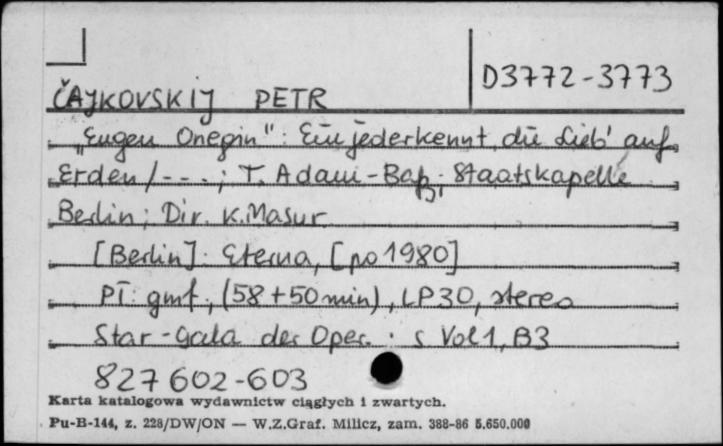 D3772-3773
ČAJKOVSKIJ PETR
„Eugen Onegin": Ein jeder kennt die Lieb' auf
Erden / - - - ; T. Adam-Baß; Staatskapelle
Berlin; Dir. K. Masur
[Berlin]: Eterna, [po 1980]
Pł: gmf.; (58+50 min), LP30, stereo
Star-Gala der Oper. : s Vol 1, B3
827 602-603
Karta katalogowa wydawnictw ciągłych i zwartych.
Pu-B-144, z. 228/DW/ON — W.Z.Graf. Milicz, zam. 388-86 5.650.000